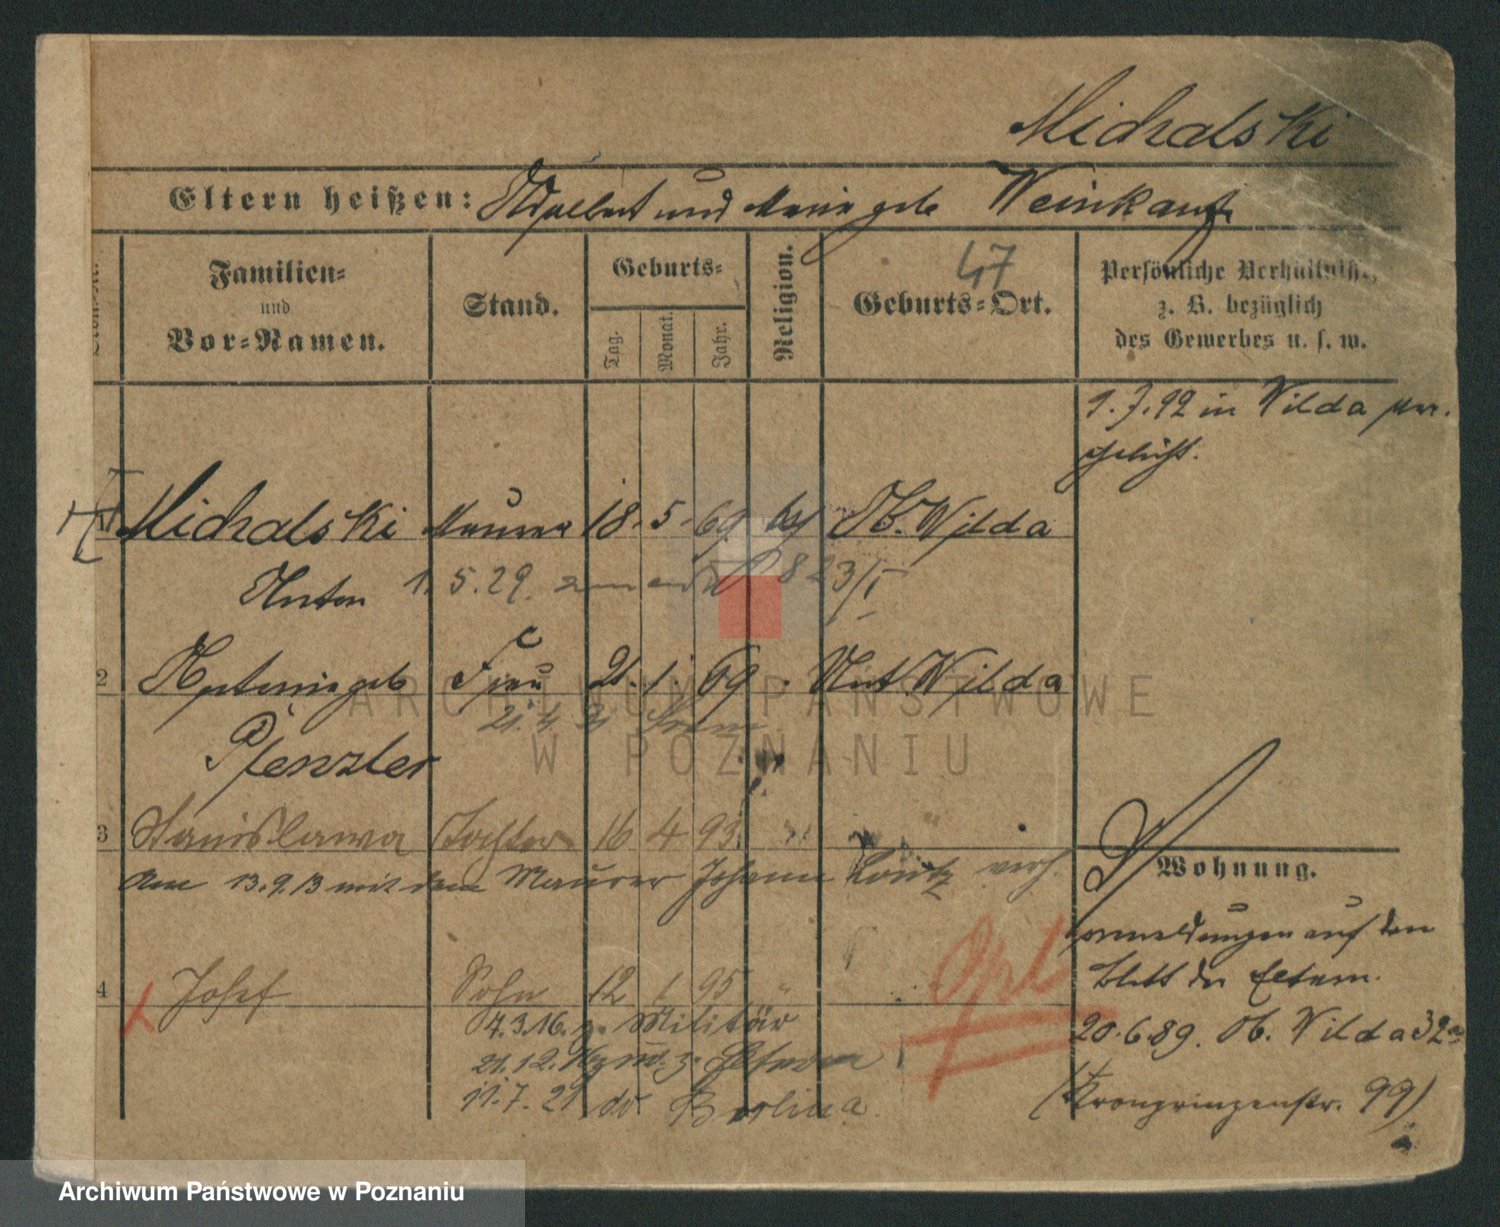 Michalski
Eltern heißen: Adalbert und Marie geb Weinkauf
47
Familien=
und
Vor=Namen.
Stand.
Geburts=
Tag.
Monat.
Jahr.
Religion.
Geburts=Ort.
Persönliche Verhältnisse,
z. B. bezüglich
des Gewerbes u. s. w.
1.7.92 in Wilda
Michalski Maurer 18. 5. 69. kth Ob. Wilda
Anton 1. 5. 29. 823/I
2 geb Frau 21. 1. 69. Unt. Wilda
Pfenzler 21. 4. 31
3 Stanislawa Tochter 16 4 93. "
Am 13.9.13 mit dem Maurer Johann verh.
Wohnung.
Anmeldungen auf dem
Blatt der Eltern.
4 Josef Sohn 12 1 95 "
Opt
4.3.16. z. Militär
20.6.89. Ob. Wilda 32a
21.12. z.
11.7.21 do Berlina
(Kronprinzenstr. 99)
ARCHIWUM PAŃSTWOWE
W POZNANIU
Archiwum Państwowe w Poznaniu